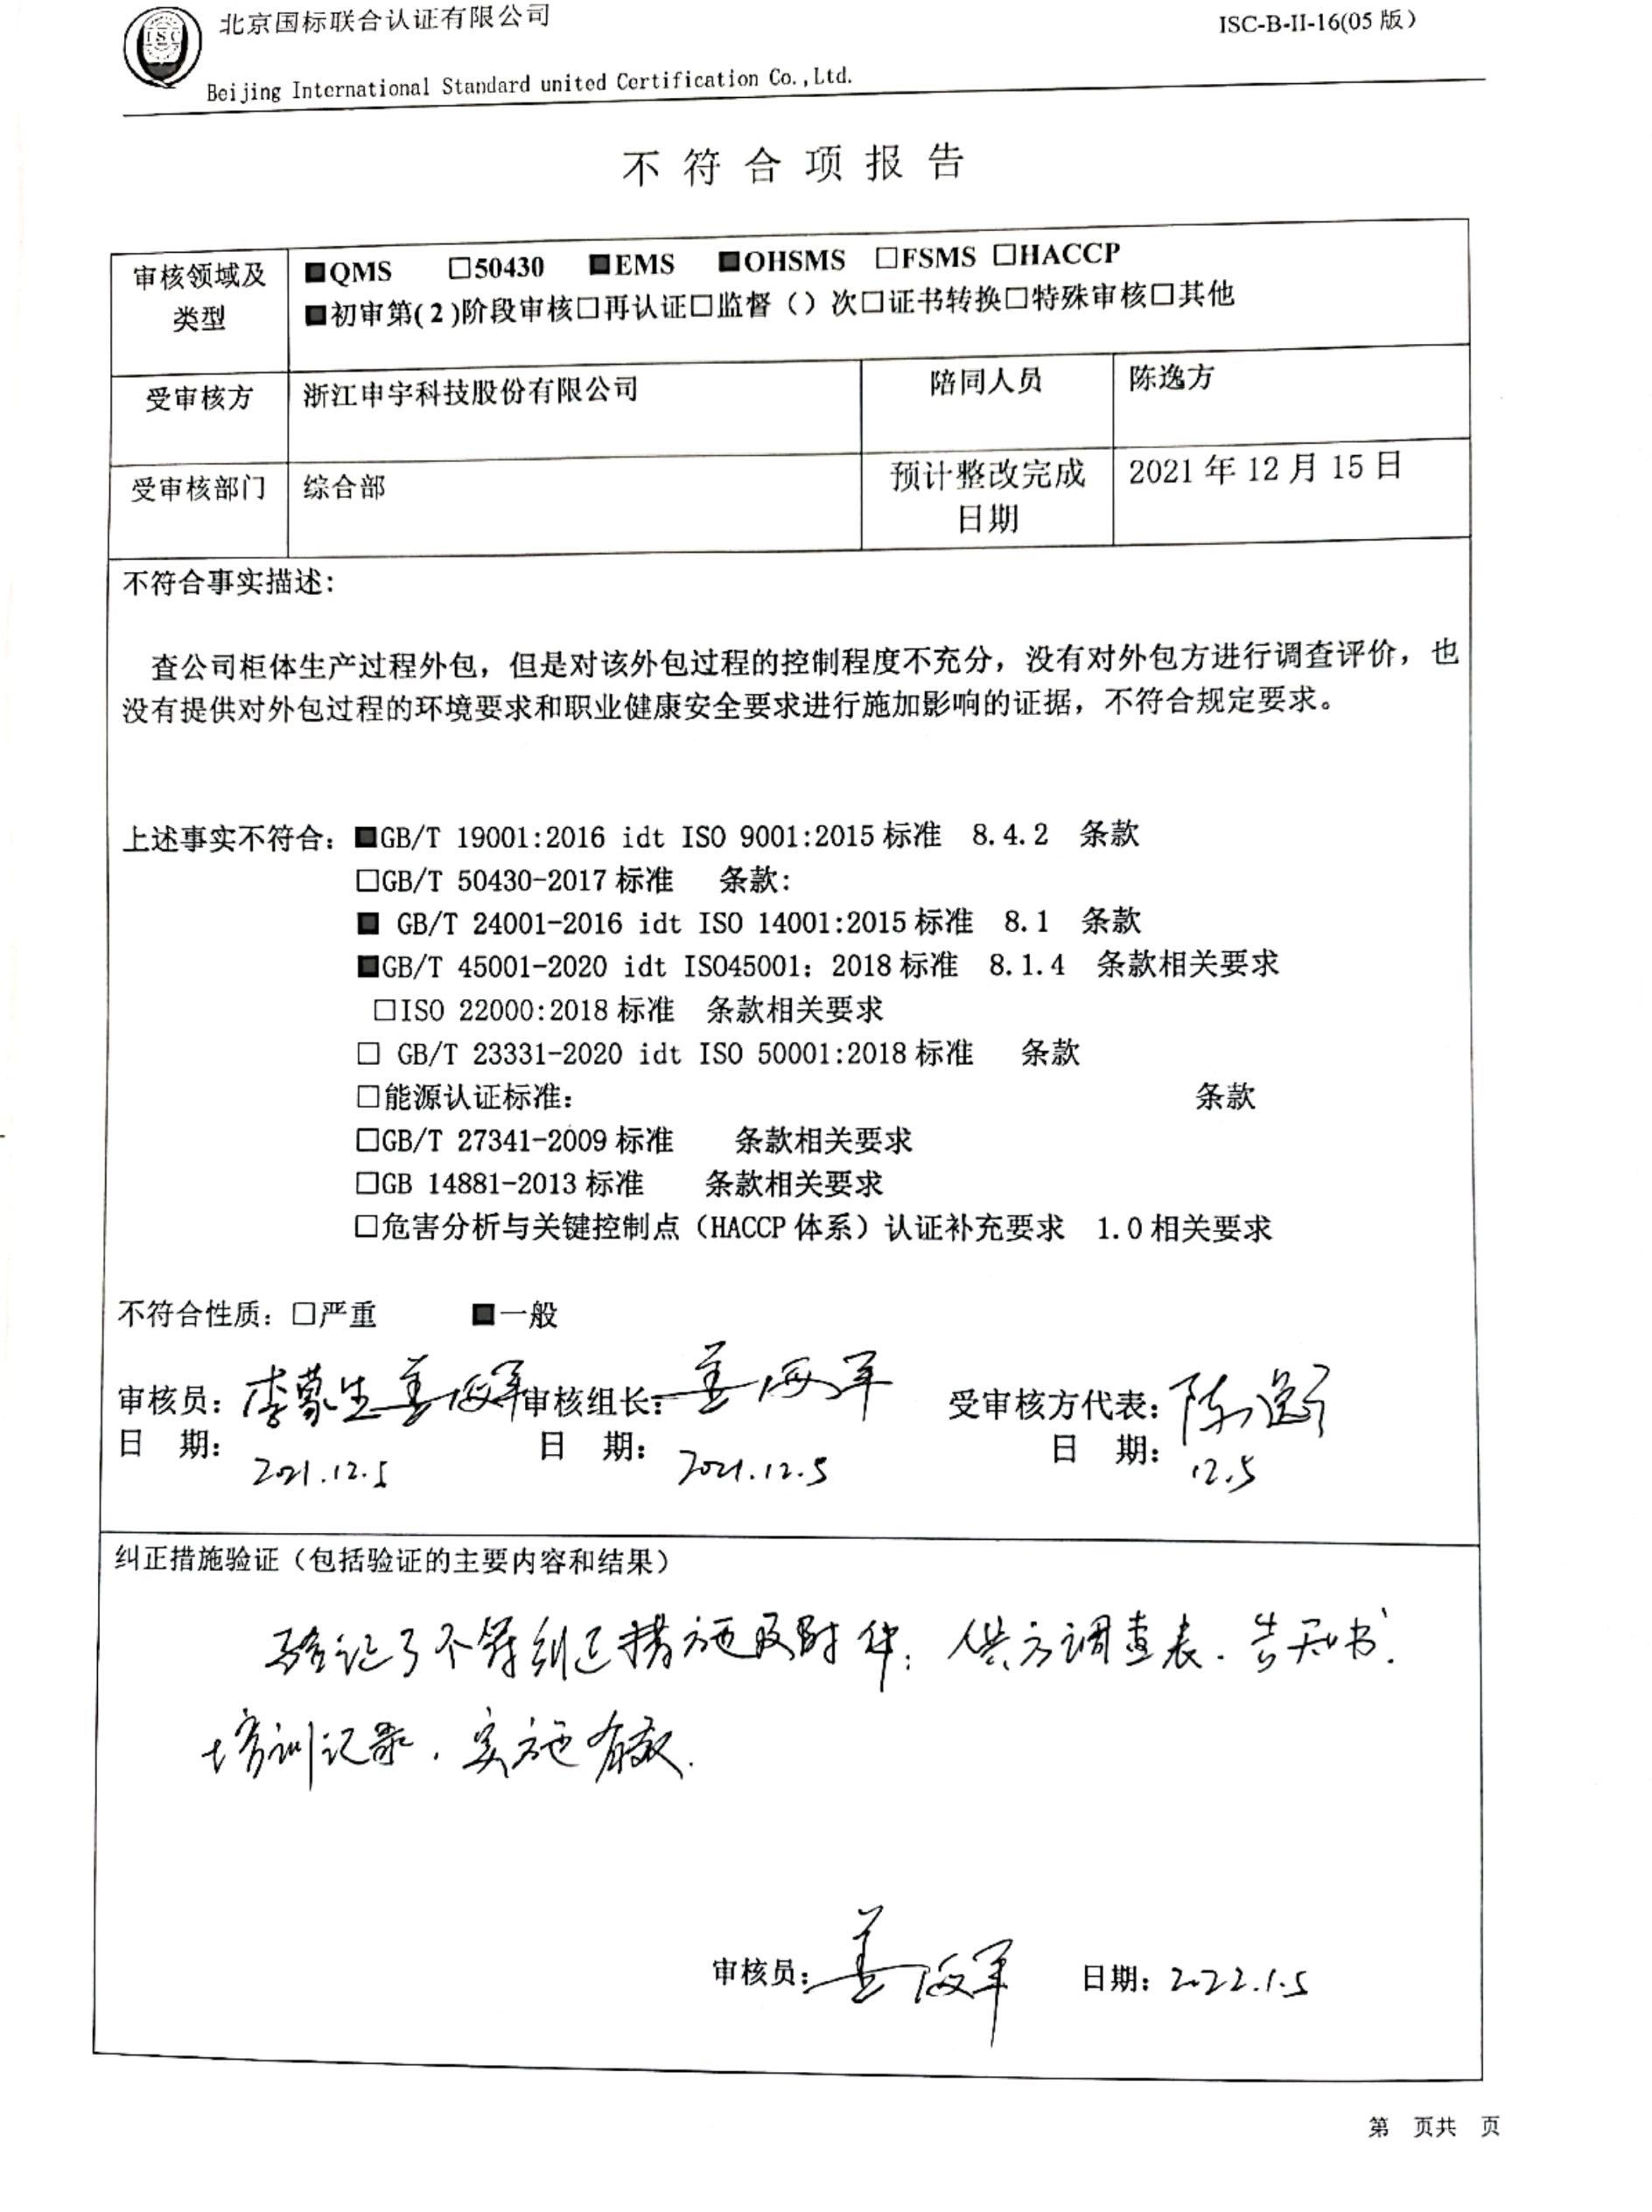 北京国标联合认证有限公司
ISC-B-II-16(05版)
Beijing International Standard united Certification Co.,Ltd.
不符合项报告
审核领域及类型
■QMS □50430 ■EMS ■OHSMS □FSMS □HACCP
■初审第(2)阶段审核□再认证□监督（）次□证书转换□特殊审核□其他
受审核方 浙江申宇科技股份有限公司 陪同人员 陈逸方
受审核部门 综合部 预计整改完成日期 2021年12月15日
不符合事实描述：
查公司柜体生产过程外包，但是对该外包过程的控制程度不充分，没有对外包方进行调查评价，也
没有提供对外包过程的环境要求和职业健康安全要求进行施加影响的证据，不符合规定要求。
上述事实不符合：■GB/T 19001:2016 idt ISO 9001:2015标准 8.4.2 条款
□GB/T 50430-2017标准 条款：
■ GB/T 24001-2016 idt ISO 14001:2015标准 8.1 条款
■GB/T 45001-2020 idt ISO45001：2018标准 8.1.4 条款相关要求
□ISO 22000:2018标准 条款相关要求
□ GB/T 23331-2020 idt ISO 50001:2018标准 条款
□能源认证标准： 条款
□GB/T 27341-2009标准 条款相关要求
□GB 14881-2013标准 条款相关要求
□危害分析与关键控制点（HACCP体系）认证补充要求 1.0相关要求
不符合性质：□严重 ■一般
审核员：李蒙生 姜海军 审核组长：姜海军 受审核方代表：陈逸方
日 期：2021.12.5 日 期：2021.12.5 日 期：12.5
纠正措施验证（包括验证的主要内容和结果）
验证了不符纠正措施及附件：供方调查表、告知书、
培训记录，实施有效.
审核员：姜海军 日期：2022.1.5
第 页共 页